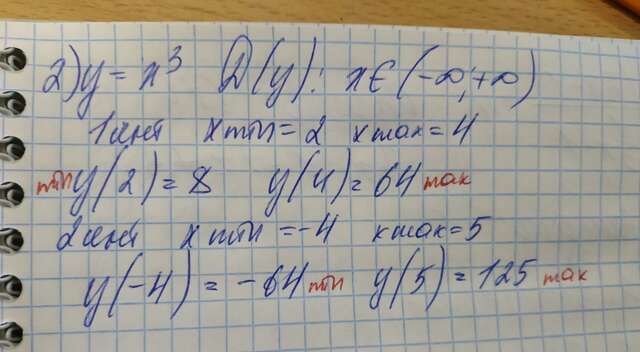 2) y = x³ D(y): x∈(-∞;+∞)
1 инт x min = 2 x max = 4
min y(2) = 8 y(4) = 64 max
2 инт x min = -4 x max = 5
y(-4) = -64 min y(5) = 125 max